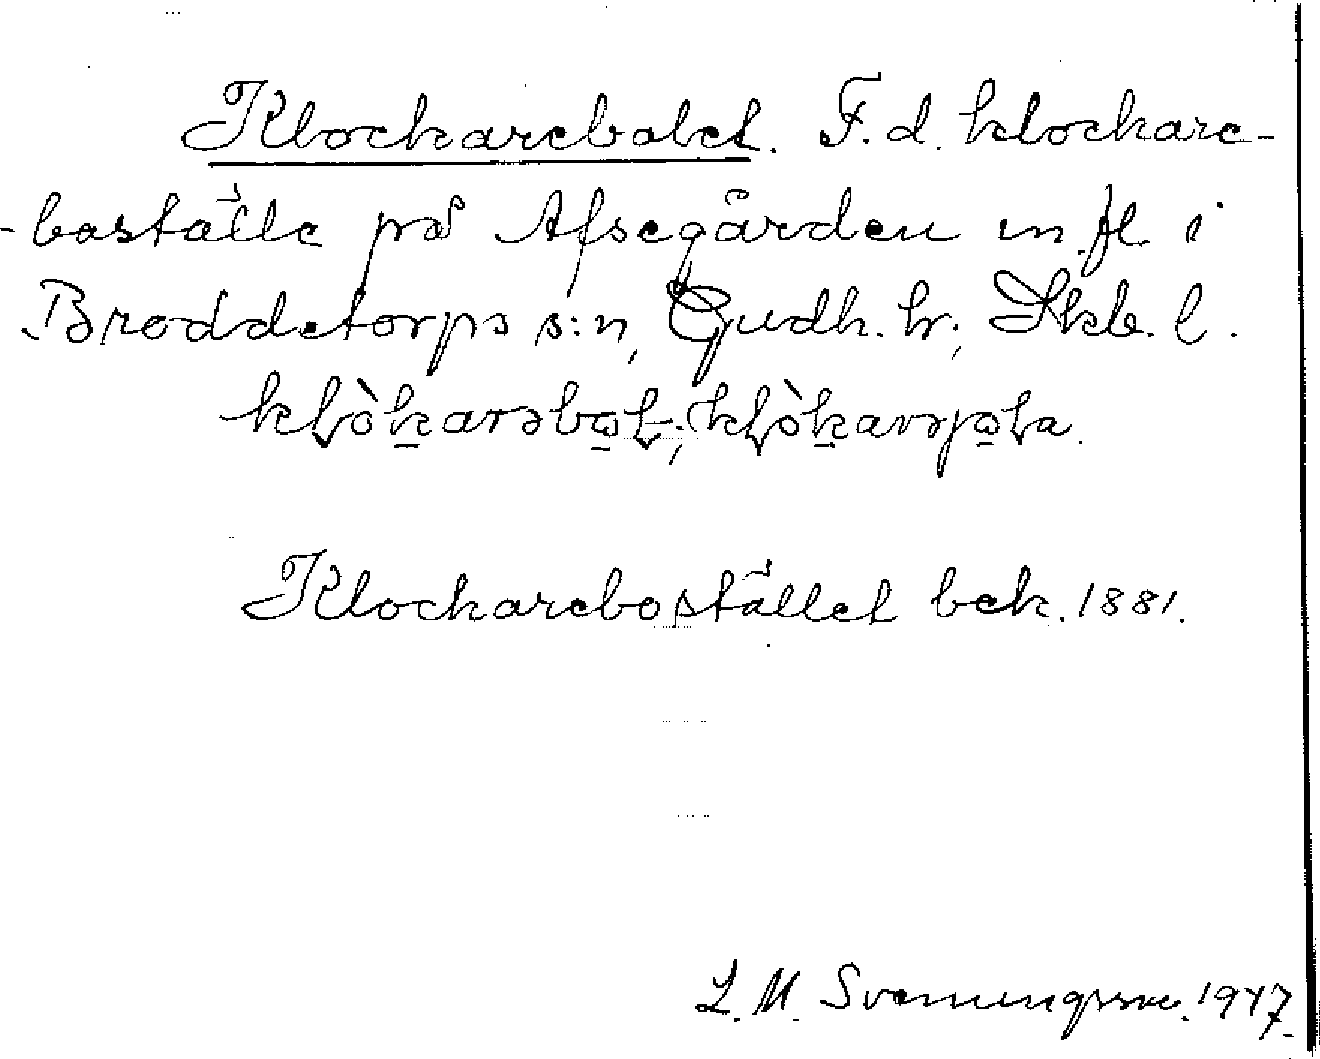 Klockarebolet. F. d. klockare-
-boställe på Afsegården m. fl. i
Broddetorps s:n, Gudh. hr; Skb. l.
Klockarebostället bek. 1881.
L. M. Svenungsson. 1947.